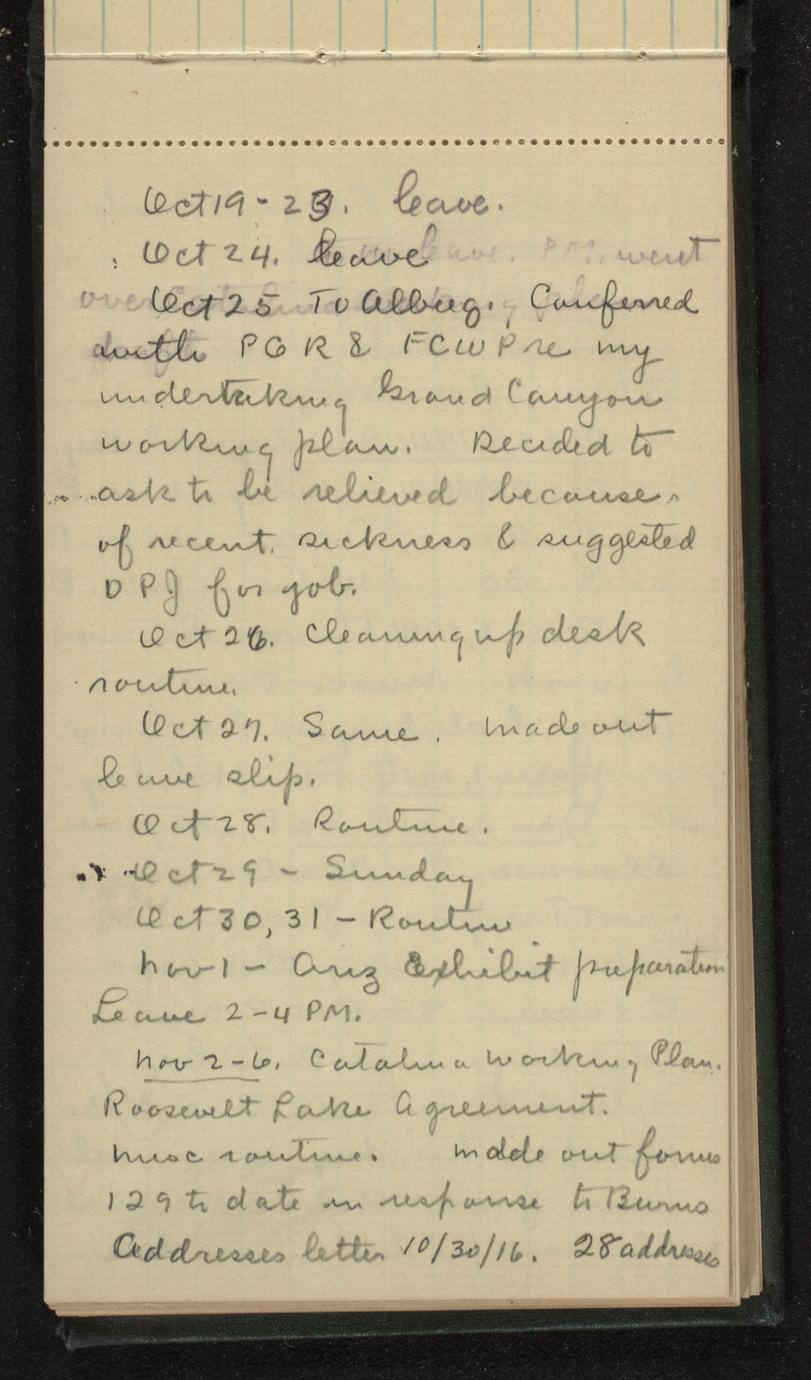 Oct 19 - 23. Leave.
Oct 24. Leave leave. P.M. went
over Oct 25 To Albuq. Conferred
with PGR & FCWP re my
undertaking Grand Canyon
working plan. Decided to
ask to be relieved because
of recent sickness & suggested
DPJ for job.
Oct 26. Cleaning up desk
routine.
Oct 27. Same. Made out
leave slip.
Oct 28. Routine.
Oct 29 - Sunday
Oct 30, 31 - Routine
Nov 1 - Ariz Exhibit preparation
Leave 2-4 PM.
Nov 2-6. Catalina Working Plan.
Roosevelt Lake Agreement.
Misc routine. Made out forms
129 to date in response to Burns
Addresses letter 10/30/16. 28 addresses